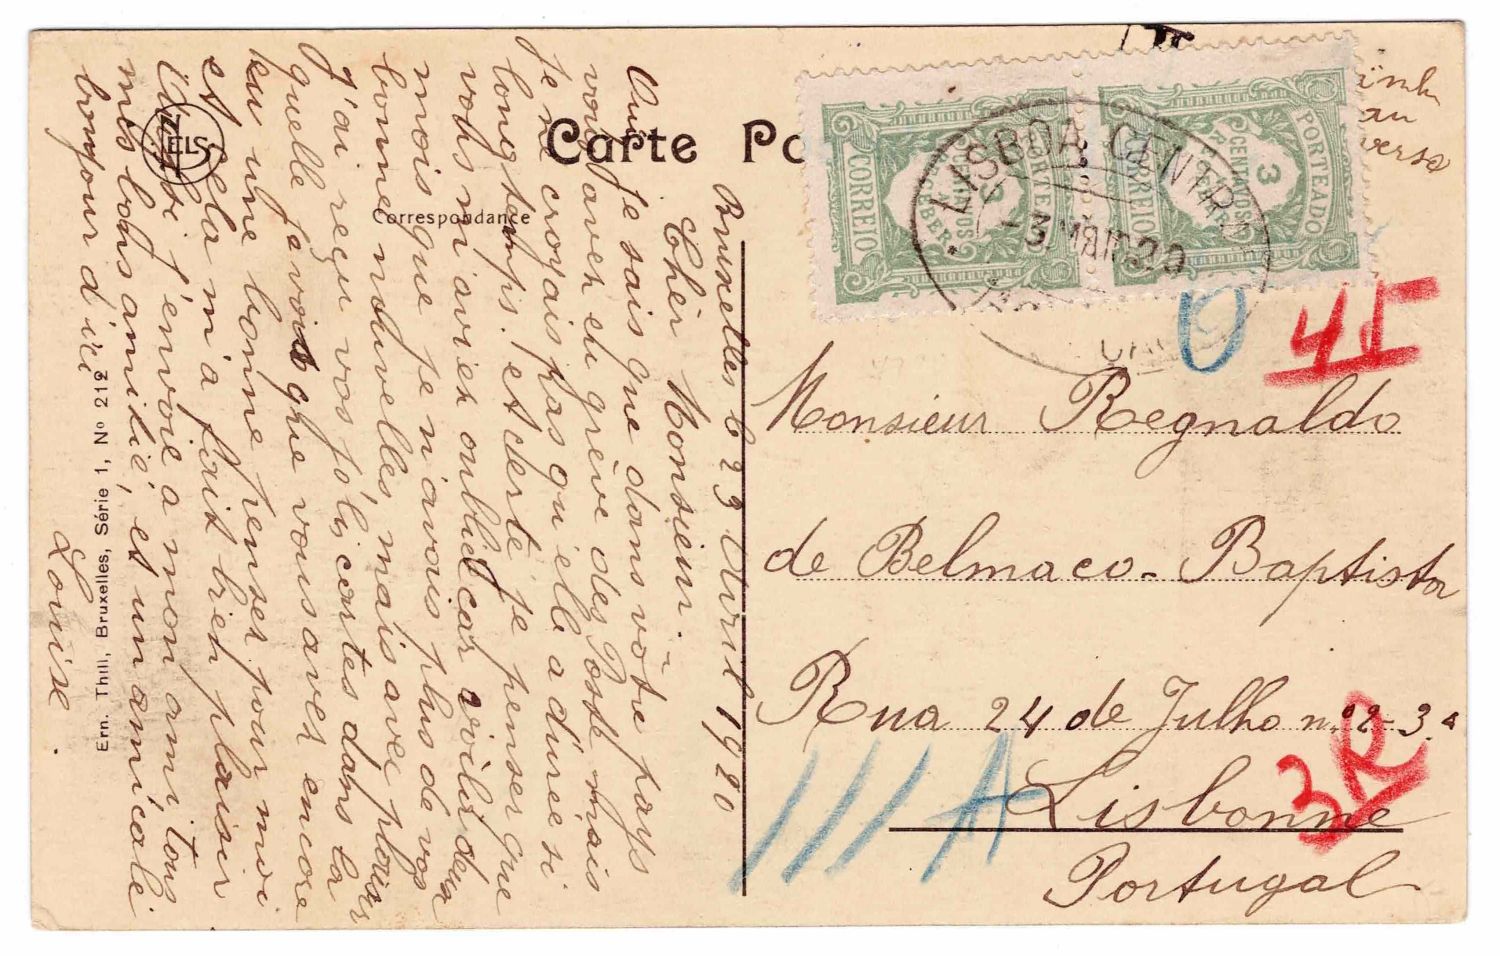 Carte Po
Correspondance
NELS
Ern. Thill, Bruxelles, Série 1, No 212
Bruxelles le 23 Avril 1920
Cher Monsieur.
Oui, je sais que dans vôtre pays
vous avez eu grève des Poste mais
je ne croyais pas qu'elle a durée si
longtemps, et certe je penser que
vous m'aviez oublié car voilà deux
mois que je n'avais plus de vos
bonne nouvelles, mais avec plaisir
J'ai reçu vos joli, cartes dans la
quelle je vois que vous avez encore
eu une bonne penser pour moi
et cela m'a fait bien plaisir
Aussi j'envoie a mon ami tous
mes bons amitié, et un amicale
bonjour d'ici
Louise.
timb
au
verso
PORTEADO
3
CENTAVOS
CORREIO
PORTEADO
3
CENTAVOS
CORREIO
LISBOA CENTRAL
-3 MAIO 20
O
45
Monsieur Regnaldo
de Belmaco - Baptista
Rua 24 de Julho n.º 2-3.º
Lisbonne
Portugal
3R
///A